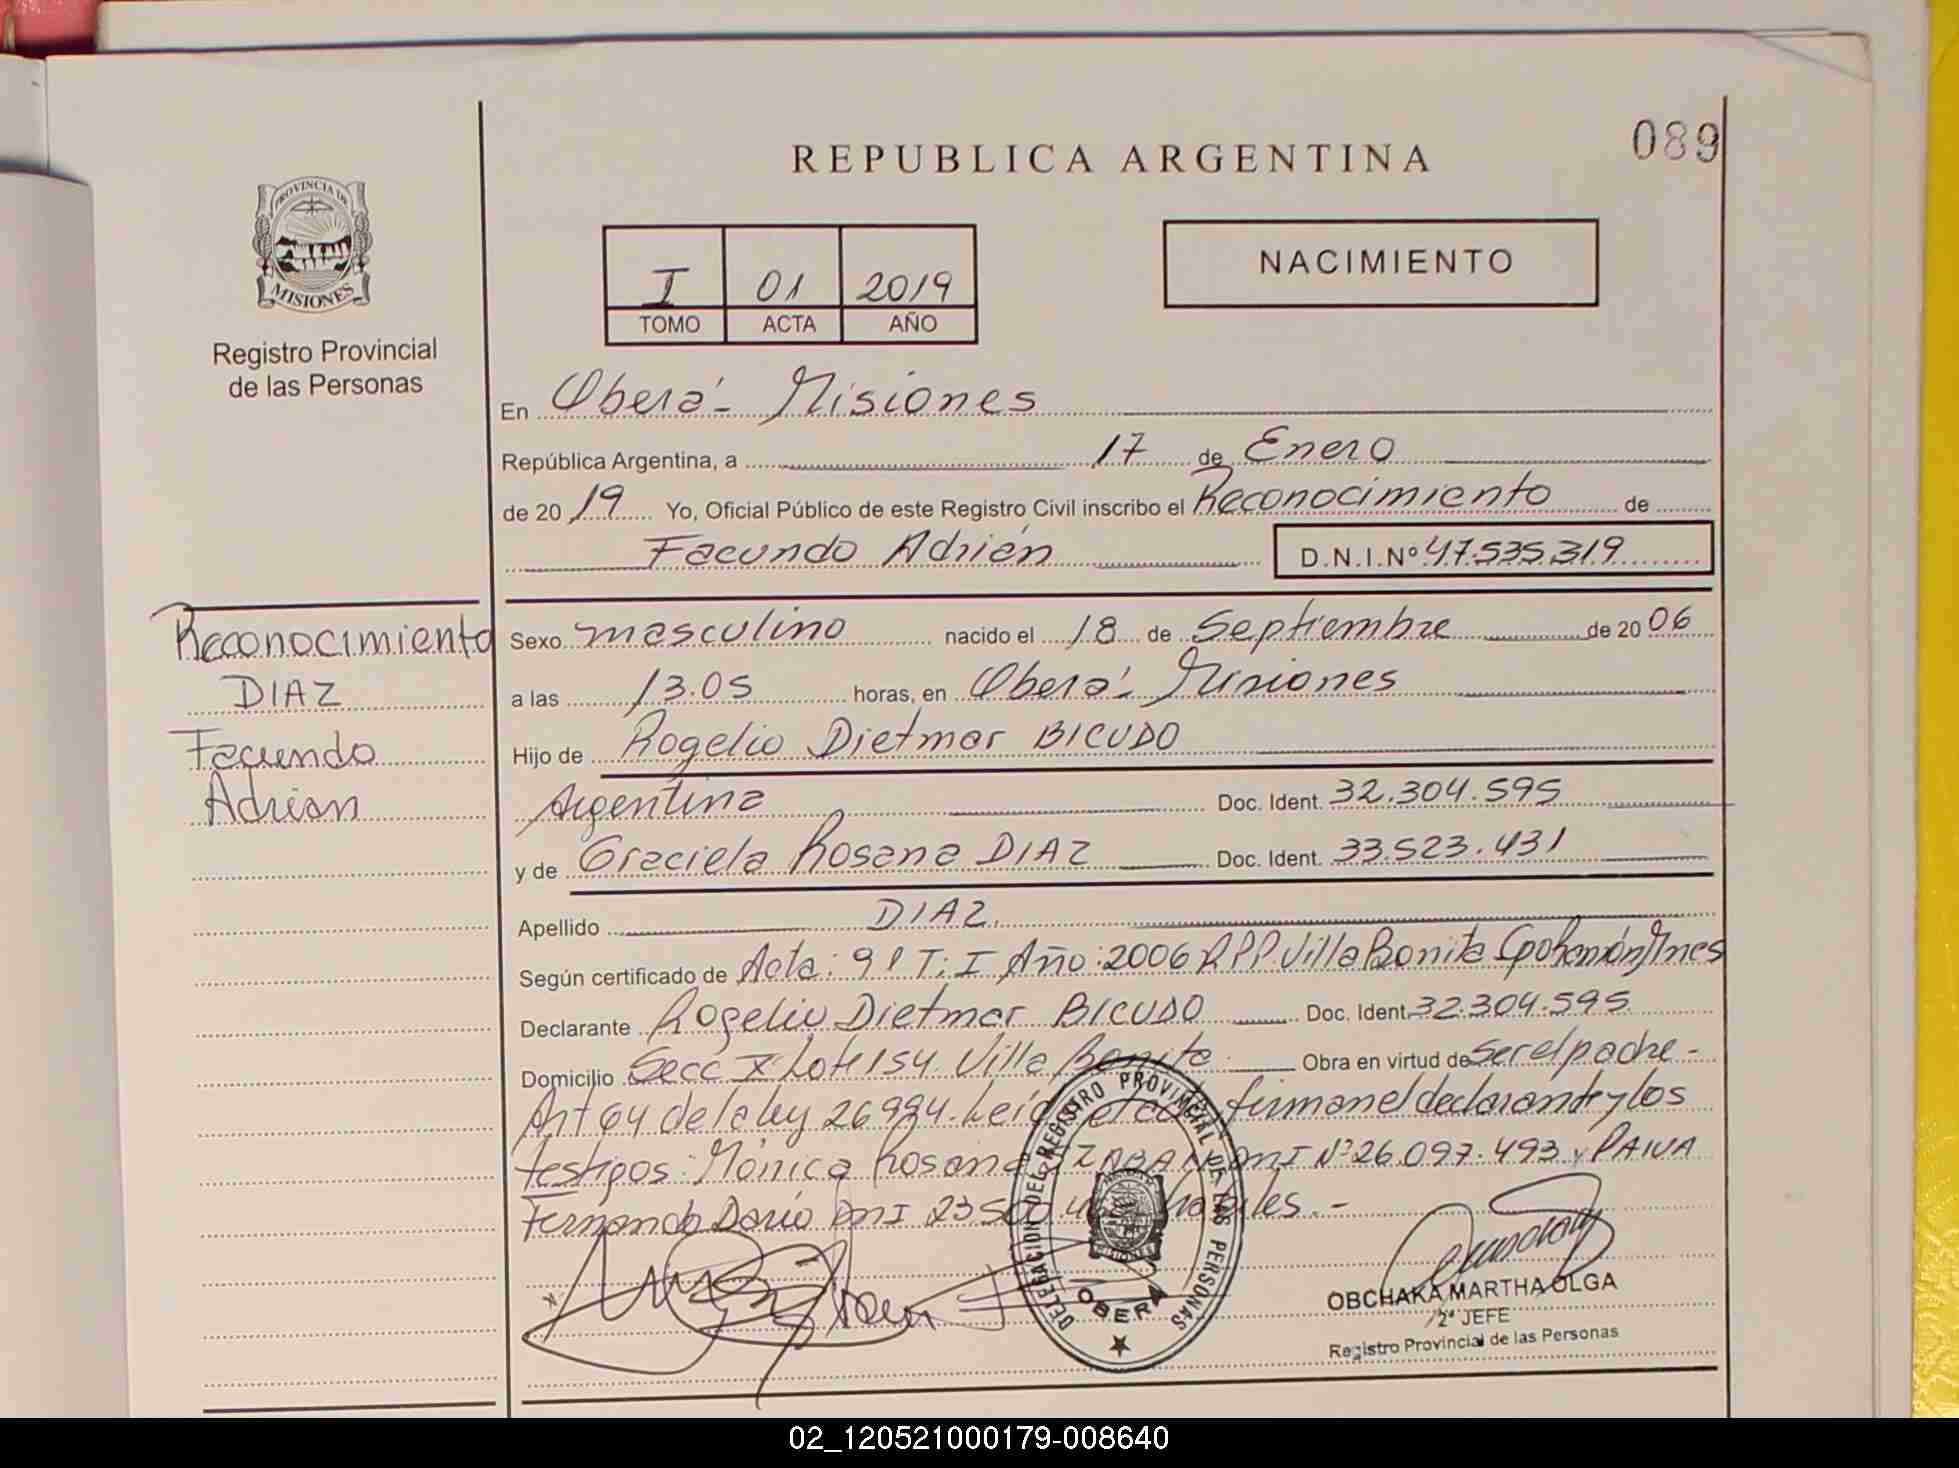 089
REPUBLICA ARGENTINA
PROVINCIA DE
MISIONES
Registro Provincial
de las Personas
I 01 2019
TOMO ACTA AÑO
NACIMIENTO
En Oberá - Misiones
República Argentina, a 17 de Enero
de 2019 Yo, Oficial Público de este Registro Civil inscribo el Reconocimiento de
Facundo Adrián D.N.I.Nº 47.535.319
Reconocimiento
DIAZ
Facundo
Adrian
Sexo masculino nacido el 18 de Septiembre de 2006
a las 13.05 horas, en Oberá - Misiones
Hijo de Rogelio Dietmar BICUDO
Argentina Doc. Ident. 32.304.595
y de Graciela Rosana DIAZ Doc. Ident. 33.523.431
Apellido DIAZ.
Según certificado de Acta: 91 T: I Año: 2006 RPP Villa Bonita
Declarante Rogelio Dietmar BICUDO Doc. Ident. 32.304.595
Domicilio Secc X Lote 154. Villa Bonita. Obra en virtud de ser el padre -
Art 64 de la ley 26994. Leída el firman el declarante y los
testigos: Mónica Rosana DNI Nº 26.097.493 y PAIVA
Fernando Darío DNI 23500 hábiles. -
DELEGACION DEL REGISTRO PROVINCIAL DE LAS PERSONAS
OBERA
OBCHAKA MARTHA OLGA
2º JEFE
Registro Provincial de las Personas
02_120521000179-008640